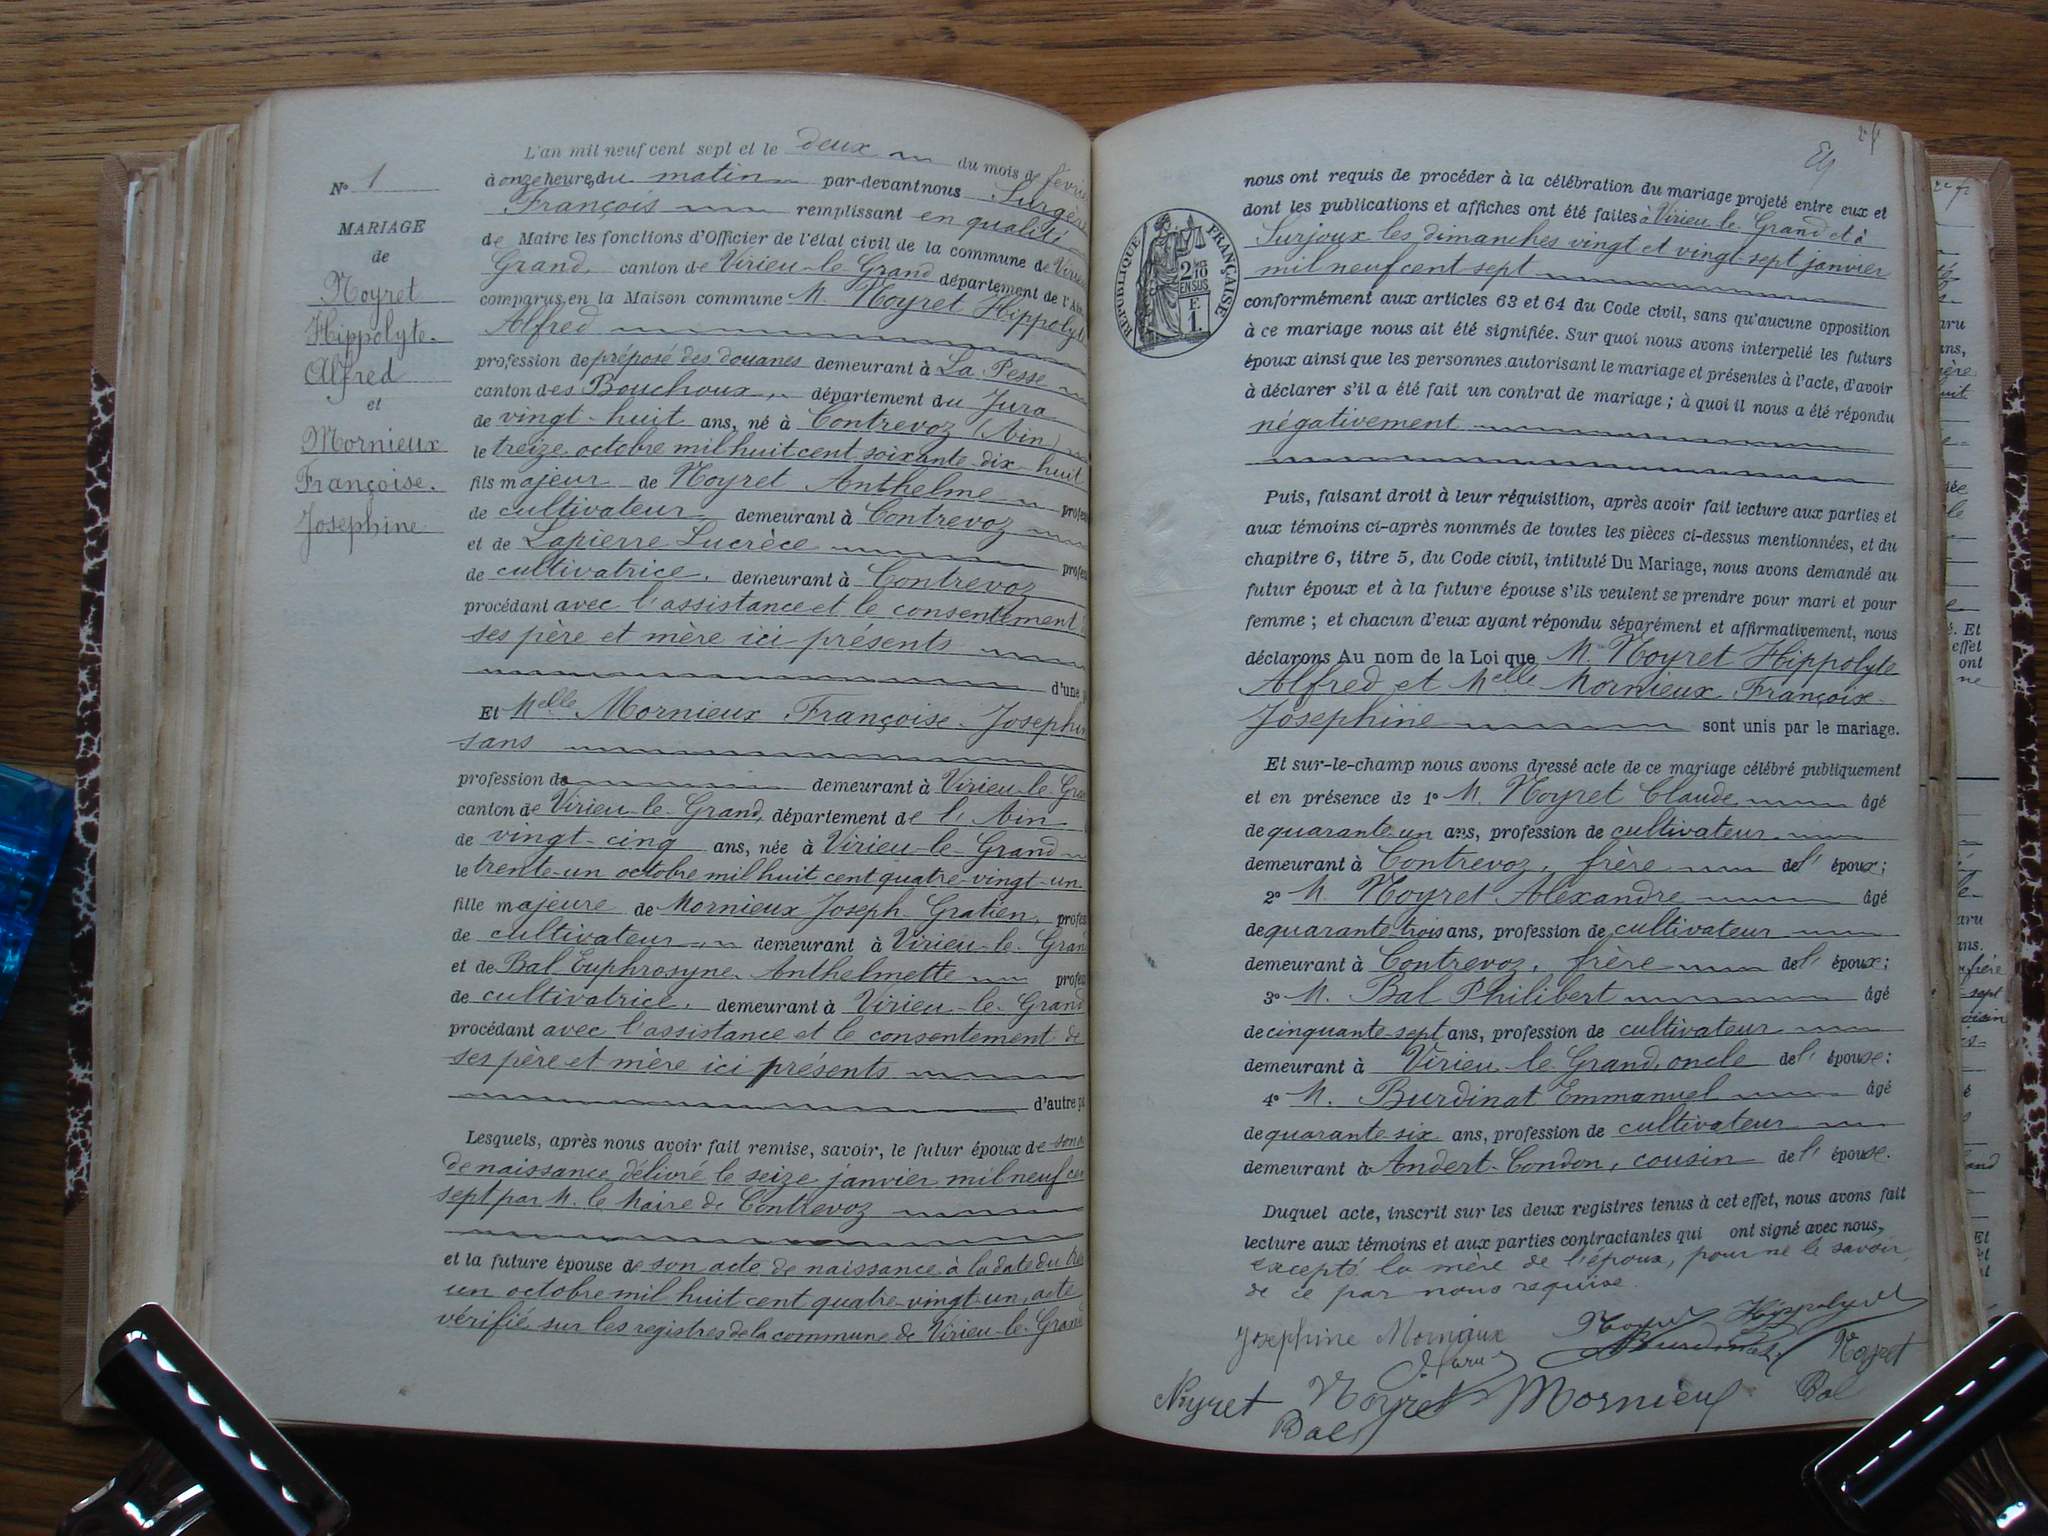 N° 1
MARIAGE
de
Noyret
Hippolyte.
Alfred
et
Mornieux
Françoise.
Josephine
L'an mil neuf cent sept et le deux du mois de
à onze heures du matin par-devant nous
François remplissant en qualité
de Maire les fonctions d'Officier de l'état civil de la commune de
Grand, canton de Virieu-le-Grand département de l'Ain,
comparus en la Maison commune M. Noyret Hippolyte
Alfred
profession de préposé des douanes demeurant à La Pesse
canton des Bouchoux département du Jura
de vingt-huit ans, né à Contrevoz (Ain)
le treize octobre mil huit cent soixante dix-huit
fils majeur de Noyret Anthelme
de cultivateur demeurant à Contrevoz
et de Lapierre Lucrèce
de cultivatrice, demeurant à Contrevoz
procédant avec l'assistance et le consentement
ses père et mère ici présents
d'une
Et Melle Mornieux Françoise-
sans
profession de demeurant à Virieu-le-
canton de Virieu-le-Grand, département de l'Ain
de vingt-cinq ans, née à Virieu-le-Grand
le trente-un octobre mil huit cent quatre-vingt-un
fille majeure de Mornieux Joseph Gratien,
de cultivateur demeurant à Virieu-le-
et de Bal Euphrosyne-Anthelmette
de cultivatrice, demeurant à Virieu-le-Grand
procédant avec l'assistance et le consentement de
ses père et mère ici présents
d'autre
Lesquels, après nous avoir fait remise, savoir, le futur époux de son
de naissance délivré le seize janvier mil neuf
sept par M. le Maire de Contrevoz
et la future épouse de son acte de naissance à la date du
un octobre mil huit cent quatre-vingt-un, acte
vérifié sur les registres de la commune de Virieu-le-Grand
RÉPUBLIQUE FRANÇAISE
2
10
EN SUS
E
1.
nous ont requis de procéder à la célébration du mariage projeté entre eux et
dont les publications et affiches ont été faites à Virieu-le-Grand et à
Surjoux les dimanches vingt et vingt-sept janvier
mil neuf cent sept
conformément aux articles 63 et 64 du Code civil, sans qu'aucune opposition
à ce mariage nous ait été signifiée. Sur quoi nous avons interpellé les futurs
époux ainsi que les personnes autorisant le mariage et présentes à l'acte, d'avoir
à déclarer s'il a été fait un contrat de mariage ; à quoi il nous a été répondu
négativement
Puis, faisant droit à leur réquisition, après avoir fait lecture aux parties et
aux témoins ci-après nommés de toutes les pièces ci-dessus mentionnées, et du
chapitre 6, titre 5, du Code civil, intitulé Du Mariage, nous avons demandé au
futur époux et à la future épouse s'ils veulent se prendre pour mari et pour
femme ; et chacun d'eux ayant répondu séparément et affirmativement, nous
déclarons Au nom de la Loi que M. Noyret Hippolyte
Alfred et Melle Mornieux Françoise-
Josephine sont unis par le mariage.
Et sur-le-champ nous avons dressé acte de ce mariage célébré publiquement
et en présence de 1° M. Noyret Claude âgé
de quarante-un ans, profession de cultivateur
demeurant à Contrevoz, frère de l' époux ;
2° M Noyret Alexandre âgé
de quarante-trois ans, profession de cultivateur
demeurant à Contrevoz, frère de l' époux ;
3° M. Bal Philibert âgé
de cinquante-sept ans, profession de cultivateur
demeurant à Virieu le Grand, oncle de l' épouse :
4° M. Burdinat Emmanuel âgé
de quarante six ans, profession de cultivateur
demeurant à Andert-Condon, cousin de l' épouse.
Duquel acte, inscrit sur les deux registres tenus à cet effet, nous avons fait
lecture aux témoins et aux parties contractantes qui ont signé avec nous,
excepté la mère de l'époux, pour ne le savoir
de ce par nous requise.
Josephine Mornieux Noyret Hippolyte
Burdinat Noyret
Noyret Noyret Mornieux Bal
Bal